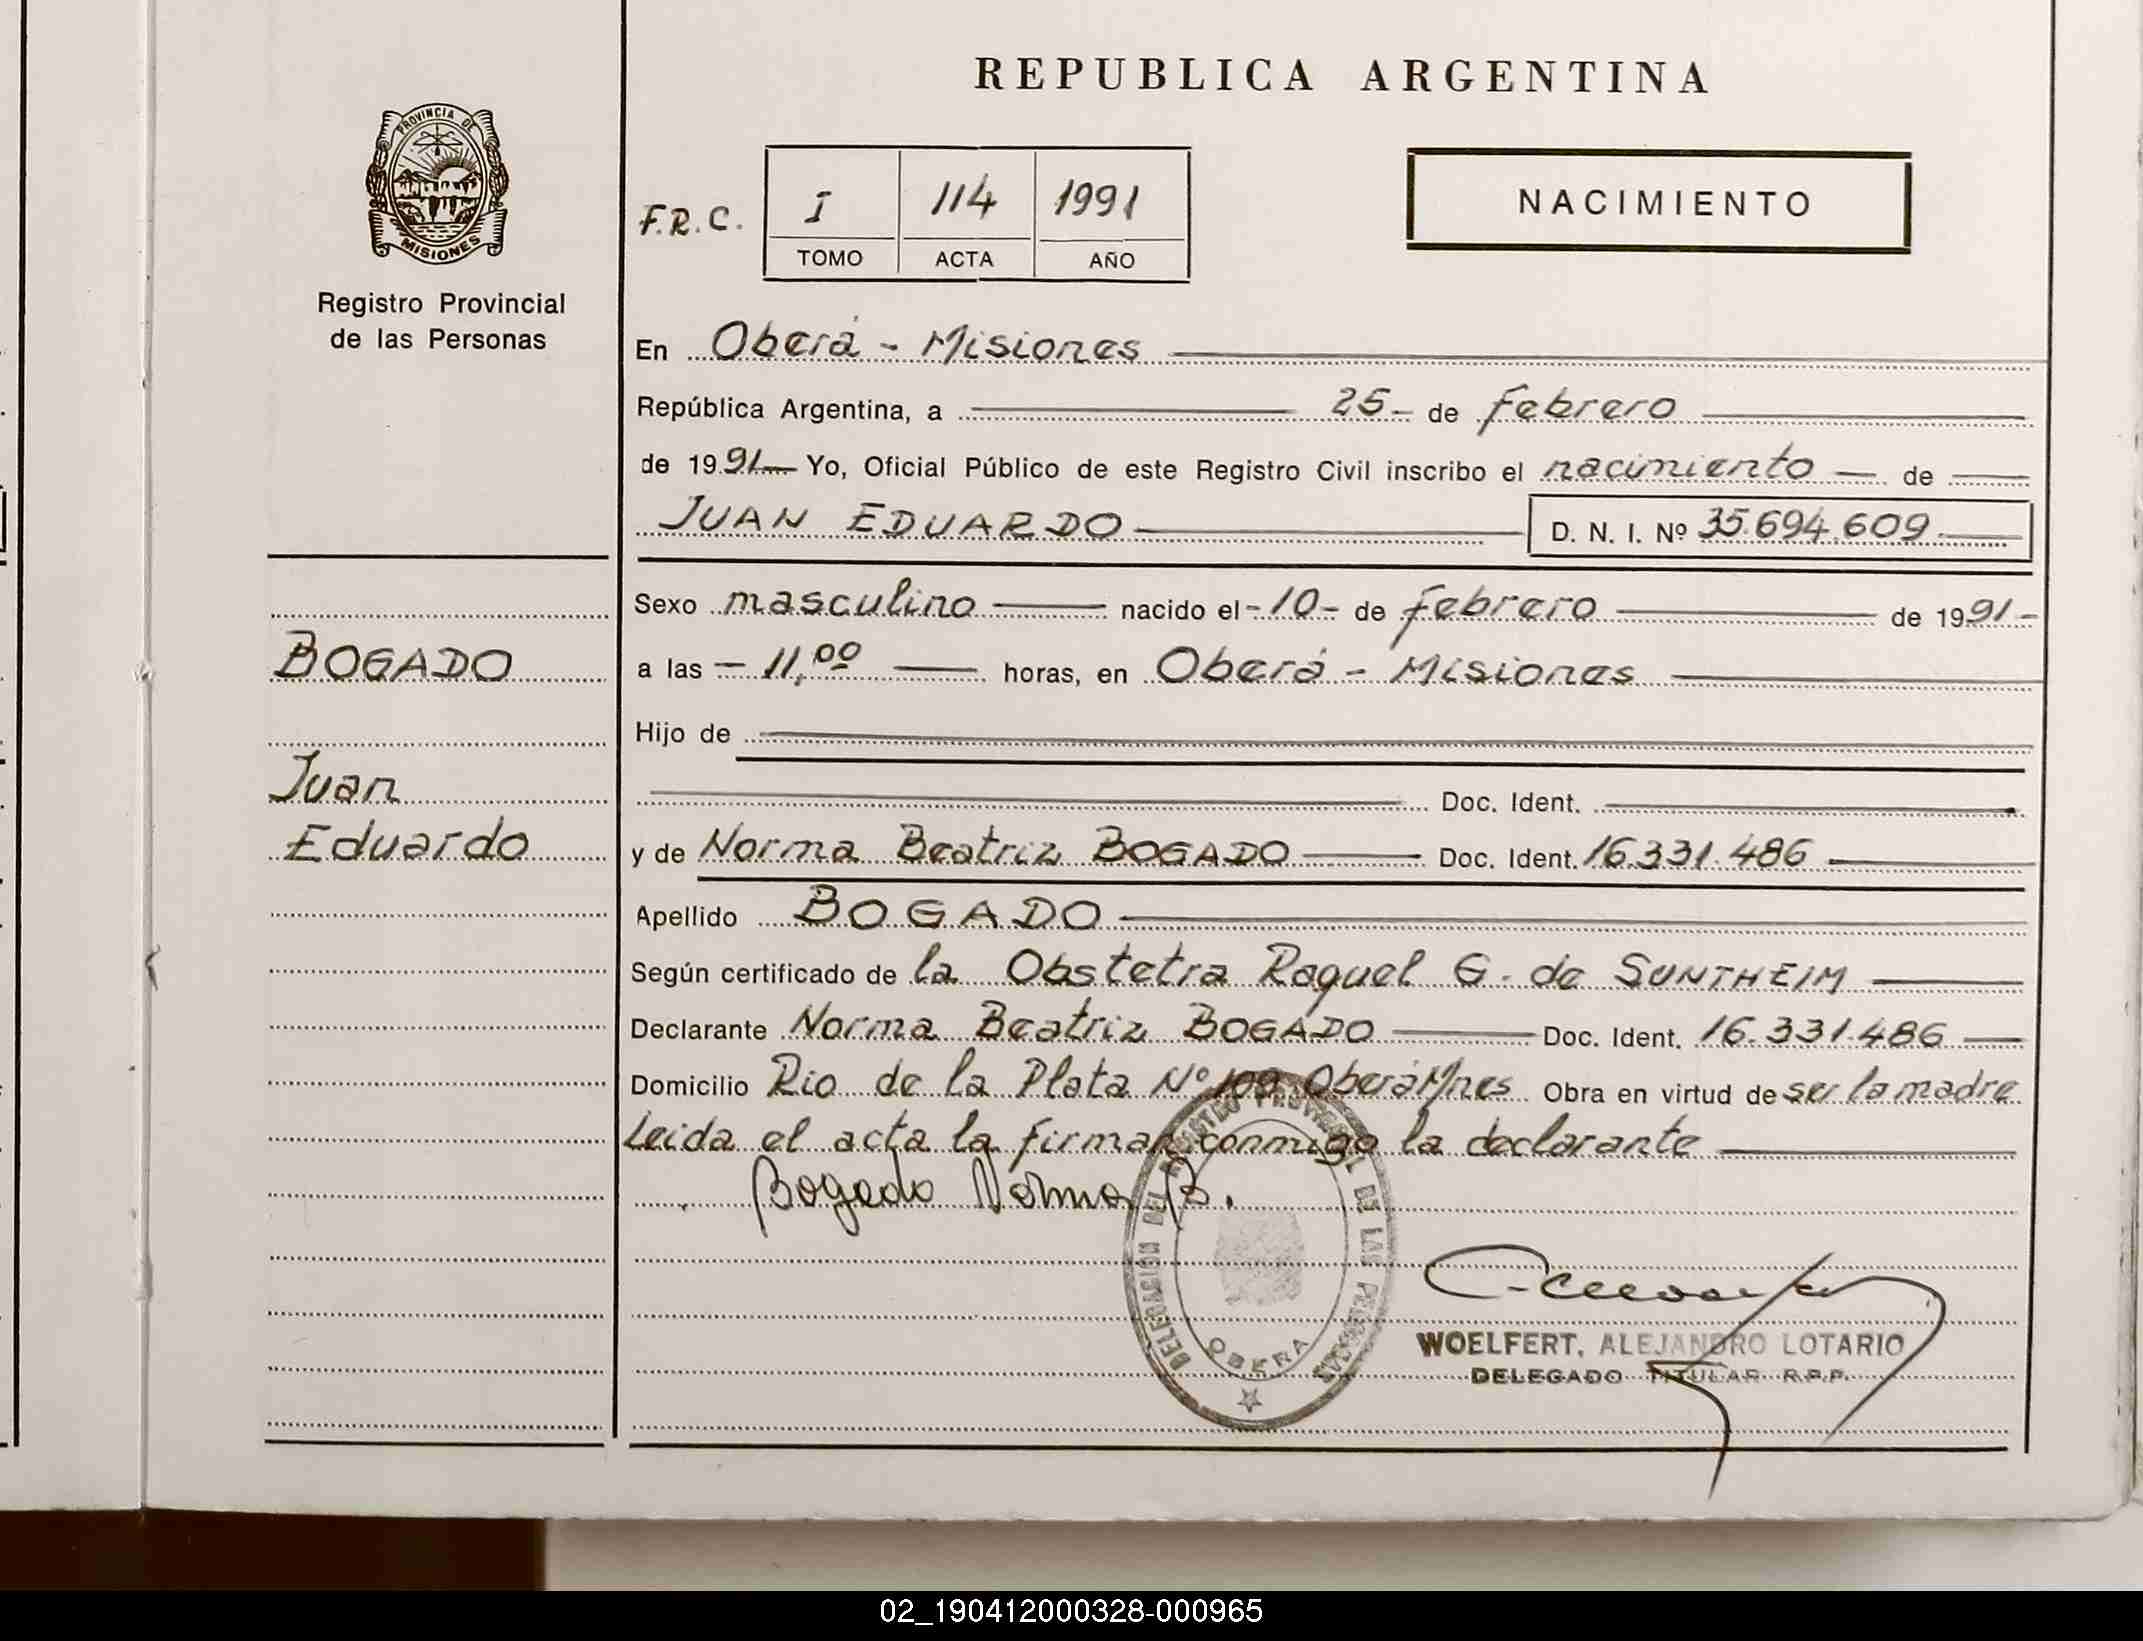 REPUBLICA ARGENTINA
PROVINCIA DE
MISIONES
Registro Provincial
de las Personas
F.R.C.
I 114 1991
TOMO ACTA AÑO
NACIMIENTO
En Oberá - Misiones
República Argentina, a 25- de febrero
de 1991 Yo, Oficial Público de este Registro Civil inscribo el nacimiento de
JUAN EDUARDO D. N. I. Nº 35.694.609
Sexo masculino nacido el -10- de febrero de 1991-
a las - 11,00 horas, en Oberá - Misiones
Hijo de
Doc. Ident.
y de Norma Beatriz BOGADO Doc. Ident. 16.331.486
Apellido BOGADO
Según certificado de la Obstetra Raquel G. de SUNTHEIM
Declarante Norma Beatriz BOGADO Doc. Ident. 16.331.486
Domicilio Rio de la Plata Nº 109 Oberá Mnes Obra en virtud de ser la madre
Leida el acta la firman conmigo la declarante
Bogado Norma B.
BOGADO
Juan
Eduardo
DELEGACION DEL REGISTRO PROVINCIAL DE LAS PERSONAS
OBERA
WOELFERT, ALEJANDRO LOTARIO
DELEGADO TITULAR R.P.P.
02_190412000328-000965